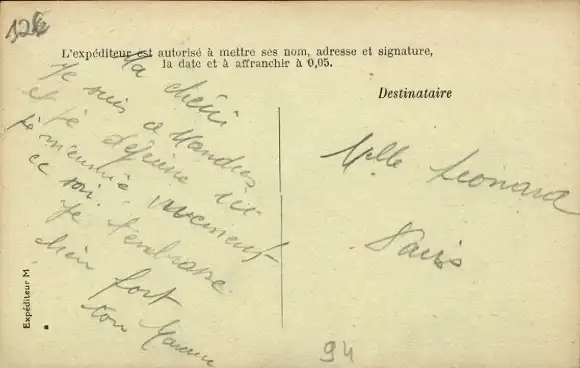 L'expéditeur est autorisé à mettre ses nom, adresse et signature,
la date et à affranchir à 0,05.
Destinataire
Ma chérie
Je suis a
et je déjeune ici
je m'ennuie
ce soir.
Je t'embrasse
bien fort
ton
Mlle Leonard
Paris
Expéditeur M
94